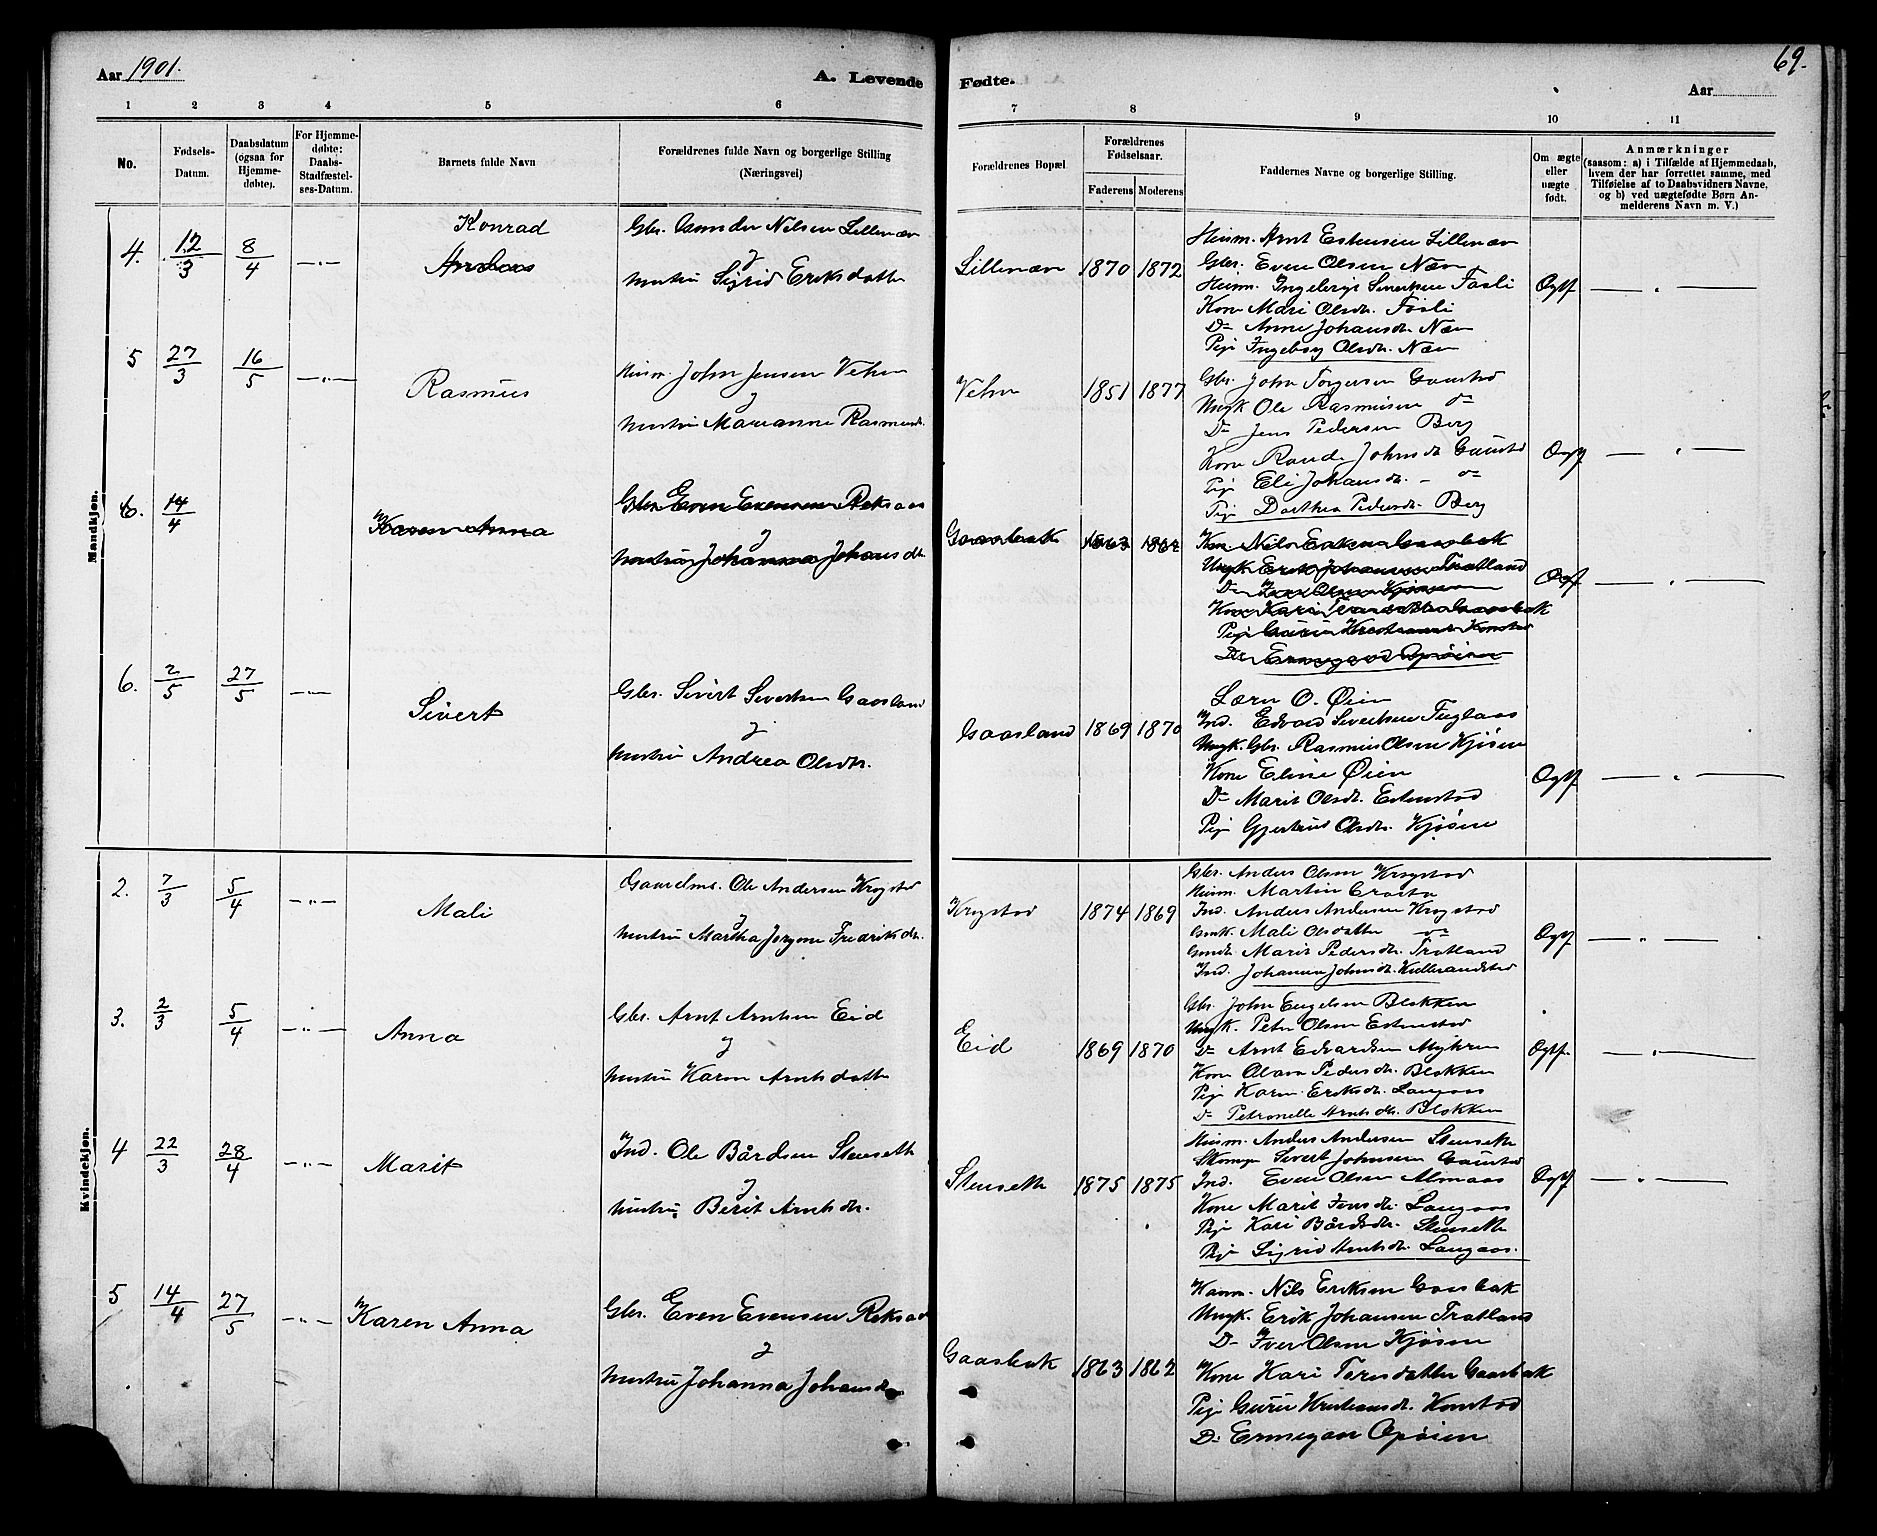 Aar 1901.
A. Levende Fødte.
69.
Aar
1 2 3 4 5 6 7 8 9 10 11
No.
Fødsels-Datum.
Daabsdatum (ogsaa for Hjemmedøbte).
For Hjemmedøbte: Daabs-Stadfæstelses-Datum.
Barnets fulde Navn
Forældrenes fulde Navn og borgerlige Stilling (Næringsvei)
Forældrenes Bopæl.
Forældrenes Fødselsaar.
Faderens Moderens
Faddernes Navne og borgerlige Stilling.
Om ægte eller uægte født.
Anmærkninger
(saasom: a) i Tilfælde af Hjemmedaab, hvem der har forrettet samme, med Tilføielse af to Daabsvidners Navne, og b) ved uægtefødte Børn Anmelderens Navn m. V.)
Mandkjøn.
4. 12/3 8/4 -„-
Konrad
Gbr. Nilsen Lillenæv
&
hustru Sigrid Eriksdatter
Lillenæv 1870 1872
Husm. Arnt Estensen Lillenæv
Gbr. Even Olsen Næv
Husm. Ingebrigt Sivertsen Fosli
Kone Mari Olsdtr. Fosli
Do Anne Johansdtr. Næv
Pige Ingeborg Olsdtr. Næv
Ægtf — „ —
5 27/3 16/5 -„-
Rasmus
Husm. John Jensen
&
hustru Marianne Rasmusdtr.
1851 1877
Gbr. John Torgersen
Ungk Ole Rasmusen do
Do Jens Pedersen Berg
Kone Johnsdtr
Pige Eli Johansdtr. - do
Pige Dorthea Pedersdtr. Berg
Ægtf — „ —
6. 14/4
Karen Anna
Gbr. Even Evensen Reksaas
&
hustru Johanna Johansdtr
Gaasbak 1863 1862
Nils Eriksen Gaasbak
Ungk. Erik Johansen Tratland
Do Iver Olsen Kjøsen
Kone Kari Gaasbak
Pige Guru Konstad
Do Ermegan Opøien
Ægtf — „ —
6. 2/5 27/5 -„-
Sivert
Gbr. Sivert Sivertsen Gaasland
&
hustru Andrea Olsdtr.
Gaasland 1869 1870
Lærer O. Øien
Ind. Edvard Sivertsen Fuglaas
Ungk. Gbr. Rasmus Olsen Kjøsen
Kone Eline Øien
Do Marit Olsdtr. Estenstad
Pige Gjertrud Olsdtr. Kjøsen
Ægtf — „ —
Kvindekjøn.
2. 7/3 5/4 -„-
Mali
Ole Andersen Krogstad
&
hustru Martha Jørgine Fredriksdtr.
Krogstad 1874 1869
Gbr. Anders Olsen Krogstad
Husm. Martin
Ind. Anders Andersen Krogstad
Mali Olsdatter do
Marit Pedersdtr. Tratland
Ind. Johanna Johnsdtr.
Ægtf — „ —
3. 2/3 5/4 -„-
Anna
Gbr. Arnt Arntsen Eid
&
hustru Karen Arntsdatter
Eid 1869 1870
Gbr. John Engelsen Blokken
Ungk. Peter Olsen Estenstad
Do Arnt Edvardsen Myhren
Kone Olava Pedersdtr. Blokken
Pige Karen Eriksdtr. Langaas
Do Petronelle Arntsdtr. Blokken
Ægtf. — „ —
4 22/3 28/4 -„-
Marit
Ind. Ole Bårdsen Stenseth
&
hustru Berit Arntsdtr.
Stenseth 1875 1875
Husm. Anders Andersen Stenseth
Sivert Johnsen
Ind. Even Olsen Almaas
Kone Marit Jensdtr. Langaas
Pige Kari Bårdsdtr. Stenseth
Pige Sigrid Arntsdtr. Langaas.
Ægtf — „ —
5 14/4 27/5 -„-
Karen Anna
Gbr. Even Evensen Reksaas
&
hustru Johanna Johansdtr
Gaasbak 1863 1862
Nils Eriksen Gaasbak
Ungk. Erik Johansen Tratland
Do Iver Olsen Kjøsen
Kone Kari Gaasbak
Pige Guru Kristiansdtr. Konstad
Do Ermegan Opøien